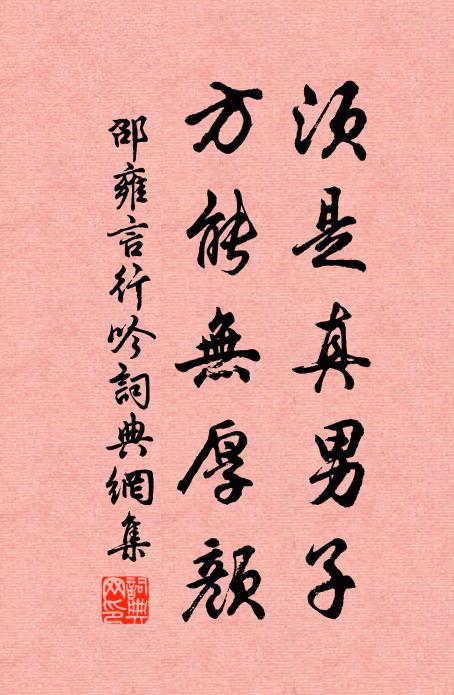 須是真男子
方能無厚顏
邵雍言行吟詞典網集
詞典網印